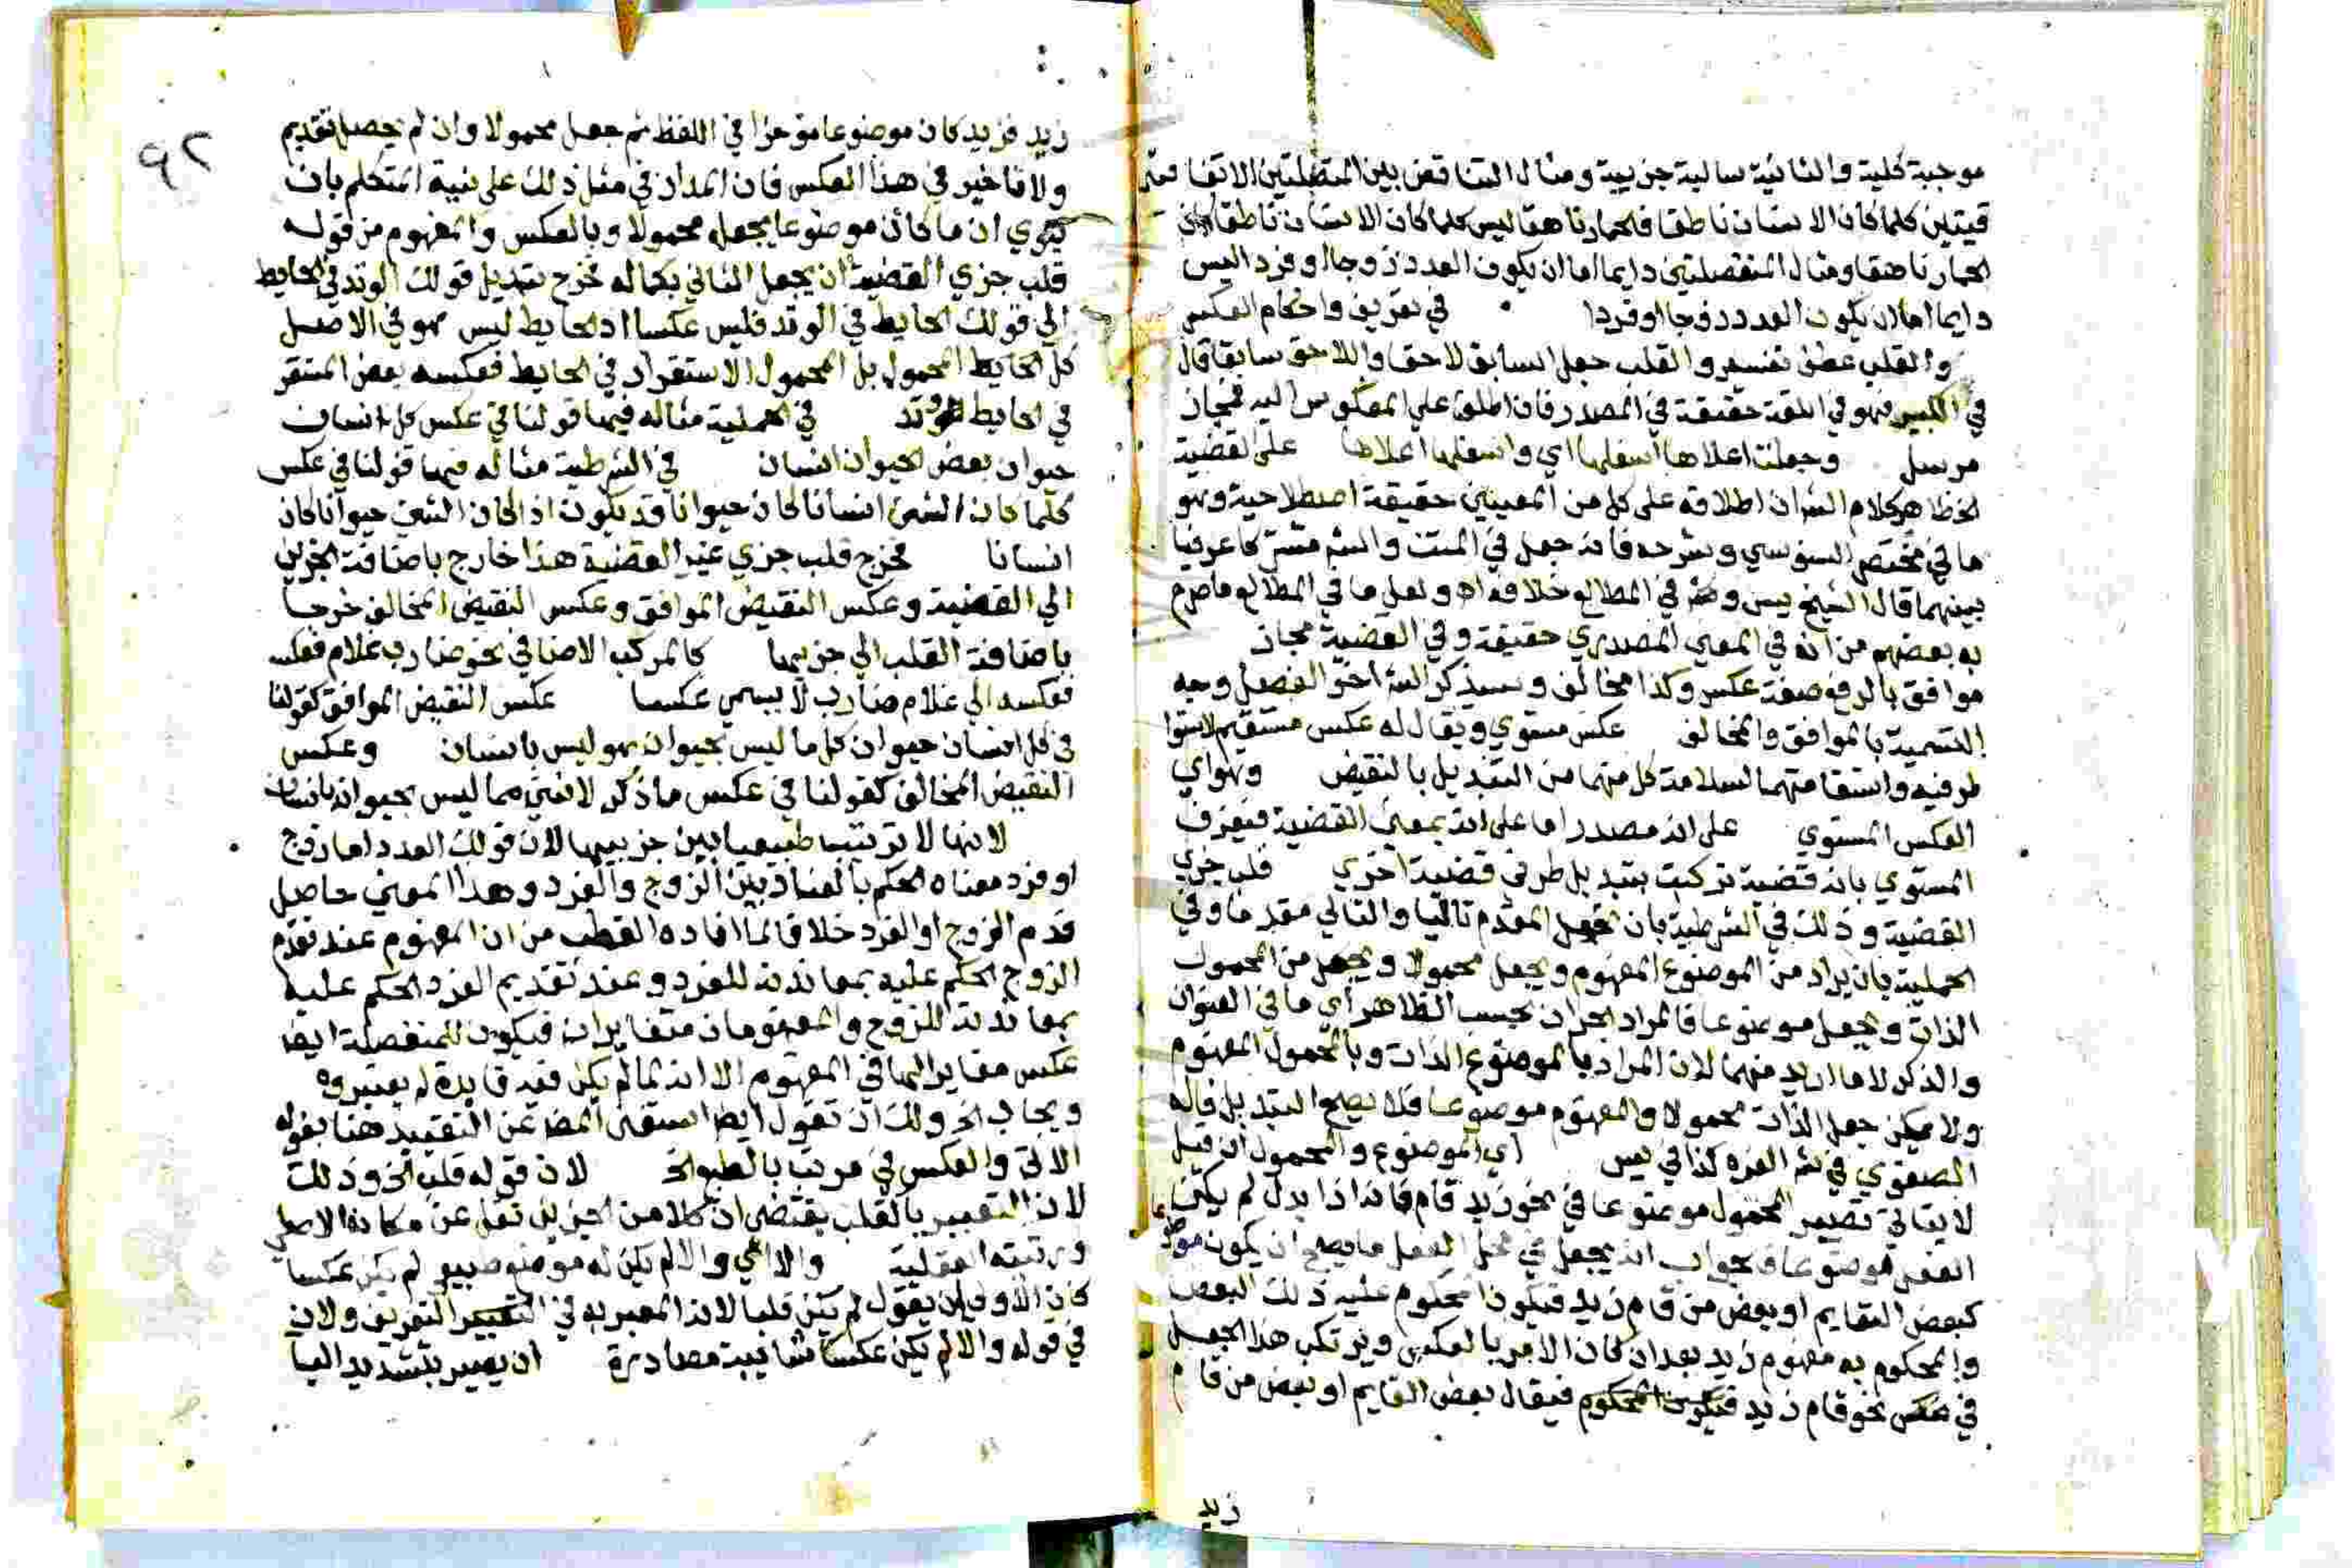 موجبة كلية والثانية سالبة جزيية ومثال التناقض بين المتصلتين الاتفا
قيتين كلما كان الانسان ناطقا فالحمار ناهقا ليس كلما كان الانسان ناطقا كان
الحمار ناهقا ومثال المنفصلتين دايما اما ان يكون العدد زوجا او فردا ليس
دايما اما ان يكون العدد زوجا او فردا في تعريف واحكام العكس
والقلب عطف تفسير والقلب جعل السابق لاحقا واللاحق سابقا قال
في الكبير فهو في اللغة حقيقة في المصدر فان اطلق على المعكوس اليه فمجاز
مرسل وجعلت اعلاها اسفلها اي واسفلها اعلاها على القضية
الخ ظاهر كلام الش ان اطلاقه على كل من المعنيين حقيقة اصطلاحية وهو
ما في مختصر السنوسي وشرحه فانه جعل في المتن والشم مشتركا عرفيا
بينهما قال الشيخ يس وفي المطالع خلافه اه ولعل ما في المطالع ما صرح
به بعضهم من انه في المعني المصدري حقيقة وفي القضية مجاز
موافق بالرفع صفة عكس وكذا مخالف وسيذكر الش اخر الفصل وجه
التسمية بالموافق والمخالف عكس مستوي ويقال له عكس مستقيم لاستوا
طرفيه واستقامتهما لسلامة كل منهما من التبديل بالنقيض وهو اي
العكس المستوي على انه مصدر اما على انه بمعني القضية فيعرف
المستوي بانه قضية تركبت بتبديل طرفي قضية اخري قلب جزي
القضية وذلك في الشرطية بان تجعل المقدم تاليا والتالي مقدما وفي
الحملية بان يراد من الموضوع المفهوم ويجعل محمولا ويجعل من المحمول
الذات ويجعل موضوعا فالمراد الجزان بحسب الظاهر اي ما في العنوان
والذكر لا ما اريد منهما لان المراد بالموضوع الذات وبالمحمول المفهوم
ولا يمكن جعل الذات محمولا والمفهوم موضوعا فلا يصح التبديل قاله
الصفوي في شر الغره كذا في يس اي الموضوع والمحمول ان قيل
لا يتاتي تصيير المحمول موضوعا في نحو زيد قام فانه اذا بدل لم يكن
الفعل موضوعا فجواب انه يجعل في محل الفعل ما يصح ان يكون موضوعا
كبعض القايم او بعض من قام زيد فيكون المحكوم عليه ذلك البعض
والمحكوم به مفهوم زيد بعد ان كان الامر بالعكس ويرتكب هذا الجعل
في عكس نحو قام زيد فيكون المحكوم فيقال بعض القايم او بعض من قام
زيد
٩٢
زيد فزيد كان موضوعا موخرا في اللفظ ثم جعل محمولا وان لم يحصل تقديم
ولا تاخير في هذا العكس فان المدار في مثل ذلك على نية المتكلم بان
ينوي ان ما كان موضوعا يجعله محمولا وبالعكس والمفهوم من قوله
قلب جزي القضية ان يجعل الثاني بكماله فخرج تبديل قولك الوتد في الحايط
الي قولك الحايط في الوتد فليس عكسا اذ الحايط ليس هو في الاصل
كل الحايط المحمول بل المحمول الاستقرار في الحايط فعكسه بعض المستقر
في الحايط وتد في الحملية مثاله فيها قولنا في عكس كل انسان
حيوان بعض الحيوان انسان في الشرطية مثاله فيها قولنا في عكس
كلما كان الشي انسانا كان حيوانا قد يكون اذا كان الشي حيوانا كان
انسانا فخرج قلب جزي غير القضية هذا خارج باضافة الجزين
الي القضية وعكس النقيض الموافق وعكس النقيض المخالف خرجا
باضافة القلب الي جزييها كالمركب الاضافي نحو ضارب غلام فعكسه
فعكسه الي غلام ضارب لا يسمي عكسا عكس النقيض الموافق كقولنا
في كل انسان حيوان كل ما ليس بحيوان هو ليس بانسان وعكس
النقيض المخالف كقولنا في عكس ما ذكر لا شي مما ليس بحيوان بانسان
لانها لا ترتيب طبيعيا بين جزييها لان قولك العدد اما زوج
او فرد معناه الحكم بالعناد بين الزوج والفرد وهذا المعني حاصل
قدم الزوج او الفرد خلافا لما افاده القطب من ان المفهوم عند تقدم
الزوج الحكم عليه بمعاندته للفرد وعند تقديم الفرد الحكم عليه
بمعاندته للزوج والمفهومان متغايران فيكون للمنفصلة ايضا
عكس مغاير لها في المفهوم الا انه لما لم يكن فيه فايدة لم يعتبروه
ويجاب الخ ولك ان تقول ايضا استغني المص عن التقييد هنا بقوله
الاتي والعكس في مرتب بالطبع الخ لان قوله قلب الخ وذلك
لان التعبير بالقلب يقتضي ان كلا من الجزين نقل عن مكانه الاصلي
ورتبته العقلية والا اي والا لم يكن له موضع طبيعي لم يكن عكسا
كان الاولي ان يقول لم يكن قلبا لانه المعبر به في التعريف ولان
في قوله والا لم يكن عكسا شايبة مصادرة ان يصير بتشديد اليا